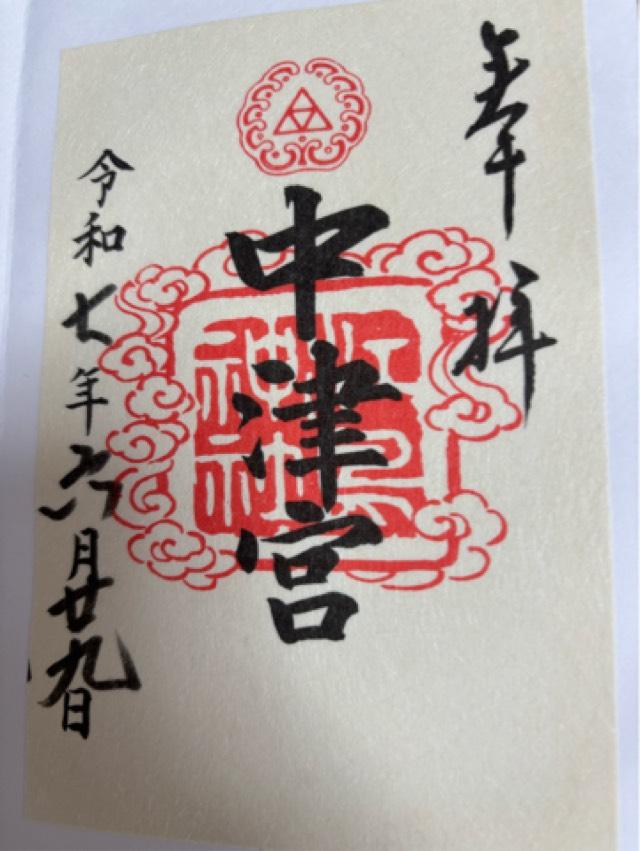 奉拝
中津宮
令和七年六月廿九日